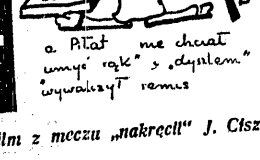 a Piłat nie chciał
umyć rąk" i „dyszlem"
"wywalczył remis
ilm z meczu „nakręcił" J. Cisz